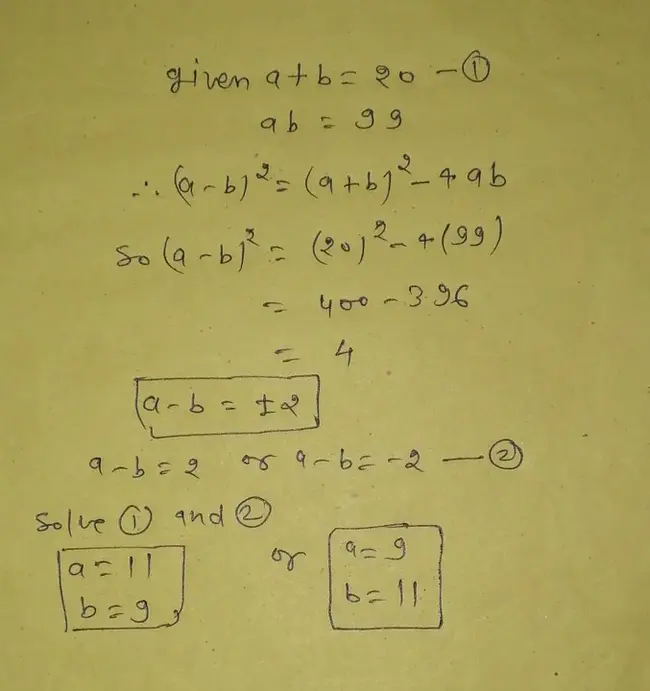 given a + b = 20 — ①
ab = 99
∴ (a - b)² = (a + b)² - 4ab
So (a - b)² = (20)² - 4(99)
= 400 - 396
= 4
a - b = ±2
a - b = 2 or a - b = -2 — ②
Solve ① and ②
a = 11 or a = 9
b = 9, b = 11